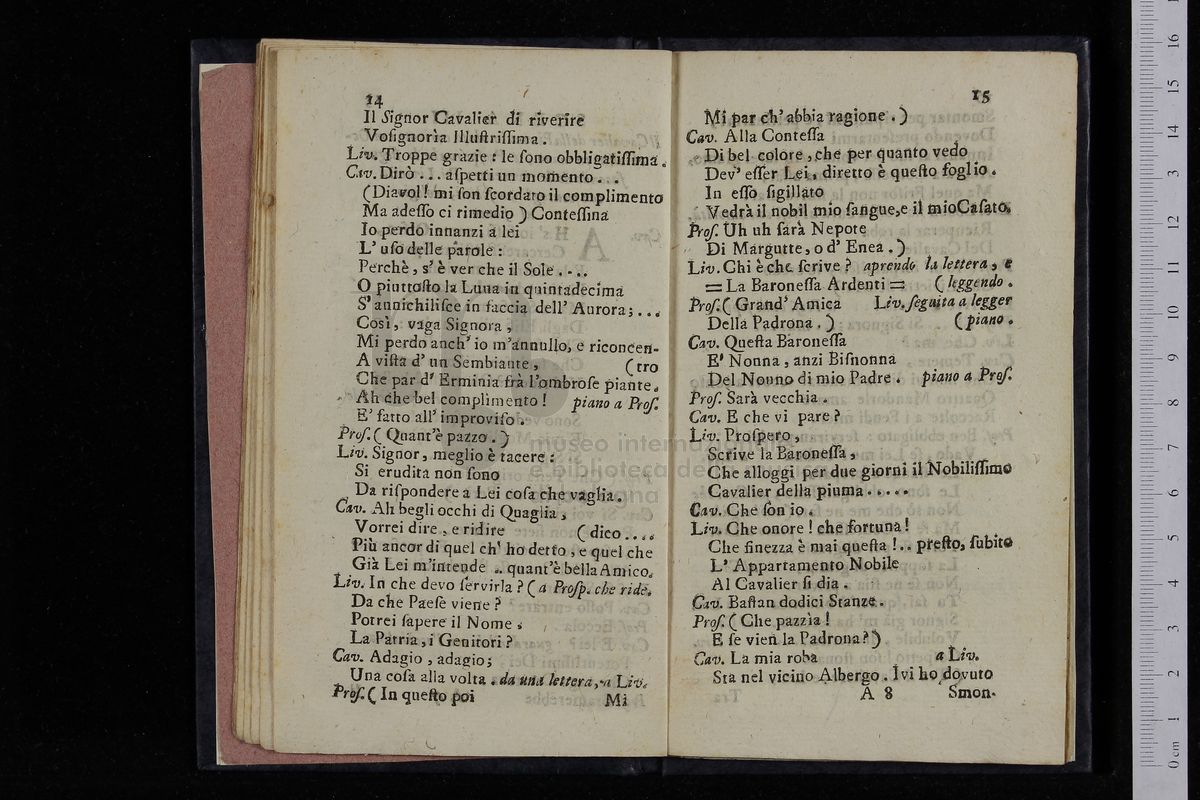 14
Il Signor Cavalier di riverire
Voſignorìa Illuſtriſſima.
Liv. Troppe grazie: le ſono obbligatiſſima.
Cav. Dirò ... aſpetti un momento..
(Diavol! mi ſon ſcordato il complimento
Ma adeſſo ci rimedio) Conteſſina
Io perdo innanzi a lei
L' uſo delle parole:
Perchè, s' è ver che il Sole....
O piuttoſto la Luna in quintadecima
S' annichiliſce in faccia dell' Aurora;...
Così, vaga Signora,
Mi perdo anch' io m'annullo, e riconcen-
A viſta d' un Sembiante, (tro
Che par d' Erminia frà l'ombroſe piante.
Ah che bel complimento! piano a Proſ.
E' fatto all' improviſo.
Proſ. (Quant'è pazzo.)
Liv. Signor, meglio è tacere:
Sì erudita non ſono
Da riſpondere a Lei coſa che vaglia.
Cav. Ah begli occhi di Quaglia,
Vorrei dire, e ridire (dico....
Più ancor di quel ch' ho detto, e quel che
Già Lei m'intende .. quant'è bella Amico.
Liv. In che devo ſervirla? (a Proſp. che ride.
Da che Paeſe viene?
Potrei ſapere il Nome;
La Patria, i Genitori?
Cav. Adagio, adagio;
Una coſa alla volta. da una lettera, a Liv.
Proſ. (In queſto poi
Mi
15
Mi par ch' abbia ragione.)
Cav. Alla Conteſſa
Di bel colore, che per quanto vedo
Dev' eſſer Lei, diretto è queſto foglio.
In eſſo ſigillato
Vedrà il nobil mio ſangue, e il mio Caſato.
Proſ. Uh uh ſarà Nepote
Di Margutte, o d' Enea.)
Liv. Chi è che ſcrive? aprendo la lettera, e
= La Baroneſſa Ardenti = (leggendo.
Proſ. (Grand' Amica Liv. ſeguita a legger
Della Padrona.) (piano.
Cav. Queſta Baroneſſa
E' Nonna, anzi Biſnonna
Del Nonno di mio Padre. piano a Proſ.
Proſ. Sarà vecchia.
Cav. E che vi pare?
Liv. Proſpero,
Scrive la Baroneſſa,
Che alloggi per due giorni il Nobiliſſimo
Cavalier della piuma.....
Cav. Che ſon io.
Liv. Che onore! che fortuna!
Che finezza è mai queſta!.. preſto, ſubito
L' Appartamento Nobile
Al Cavalier ſi dia.
Cav. Baſtan dodici Stanze.
Proſ. (Che pazzìa!
E ſe vien la Padrona?)
Cav. La mia roba a Liv.
Sta nel vicino Albergo. Ivi ho dovuto
A 8 Smon-